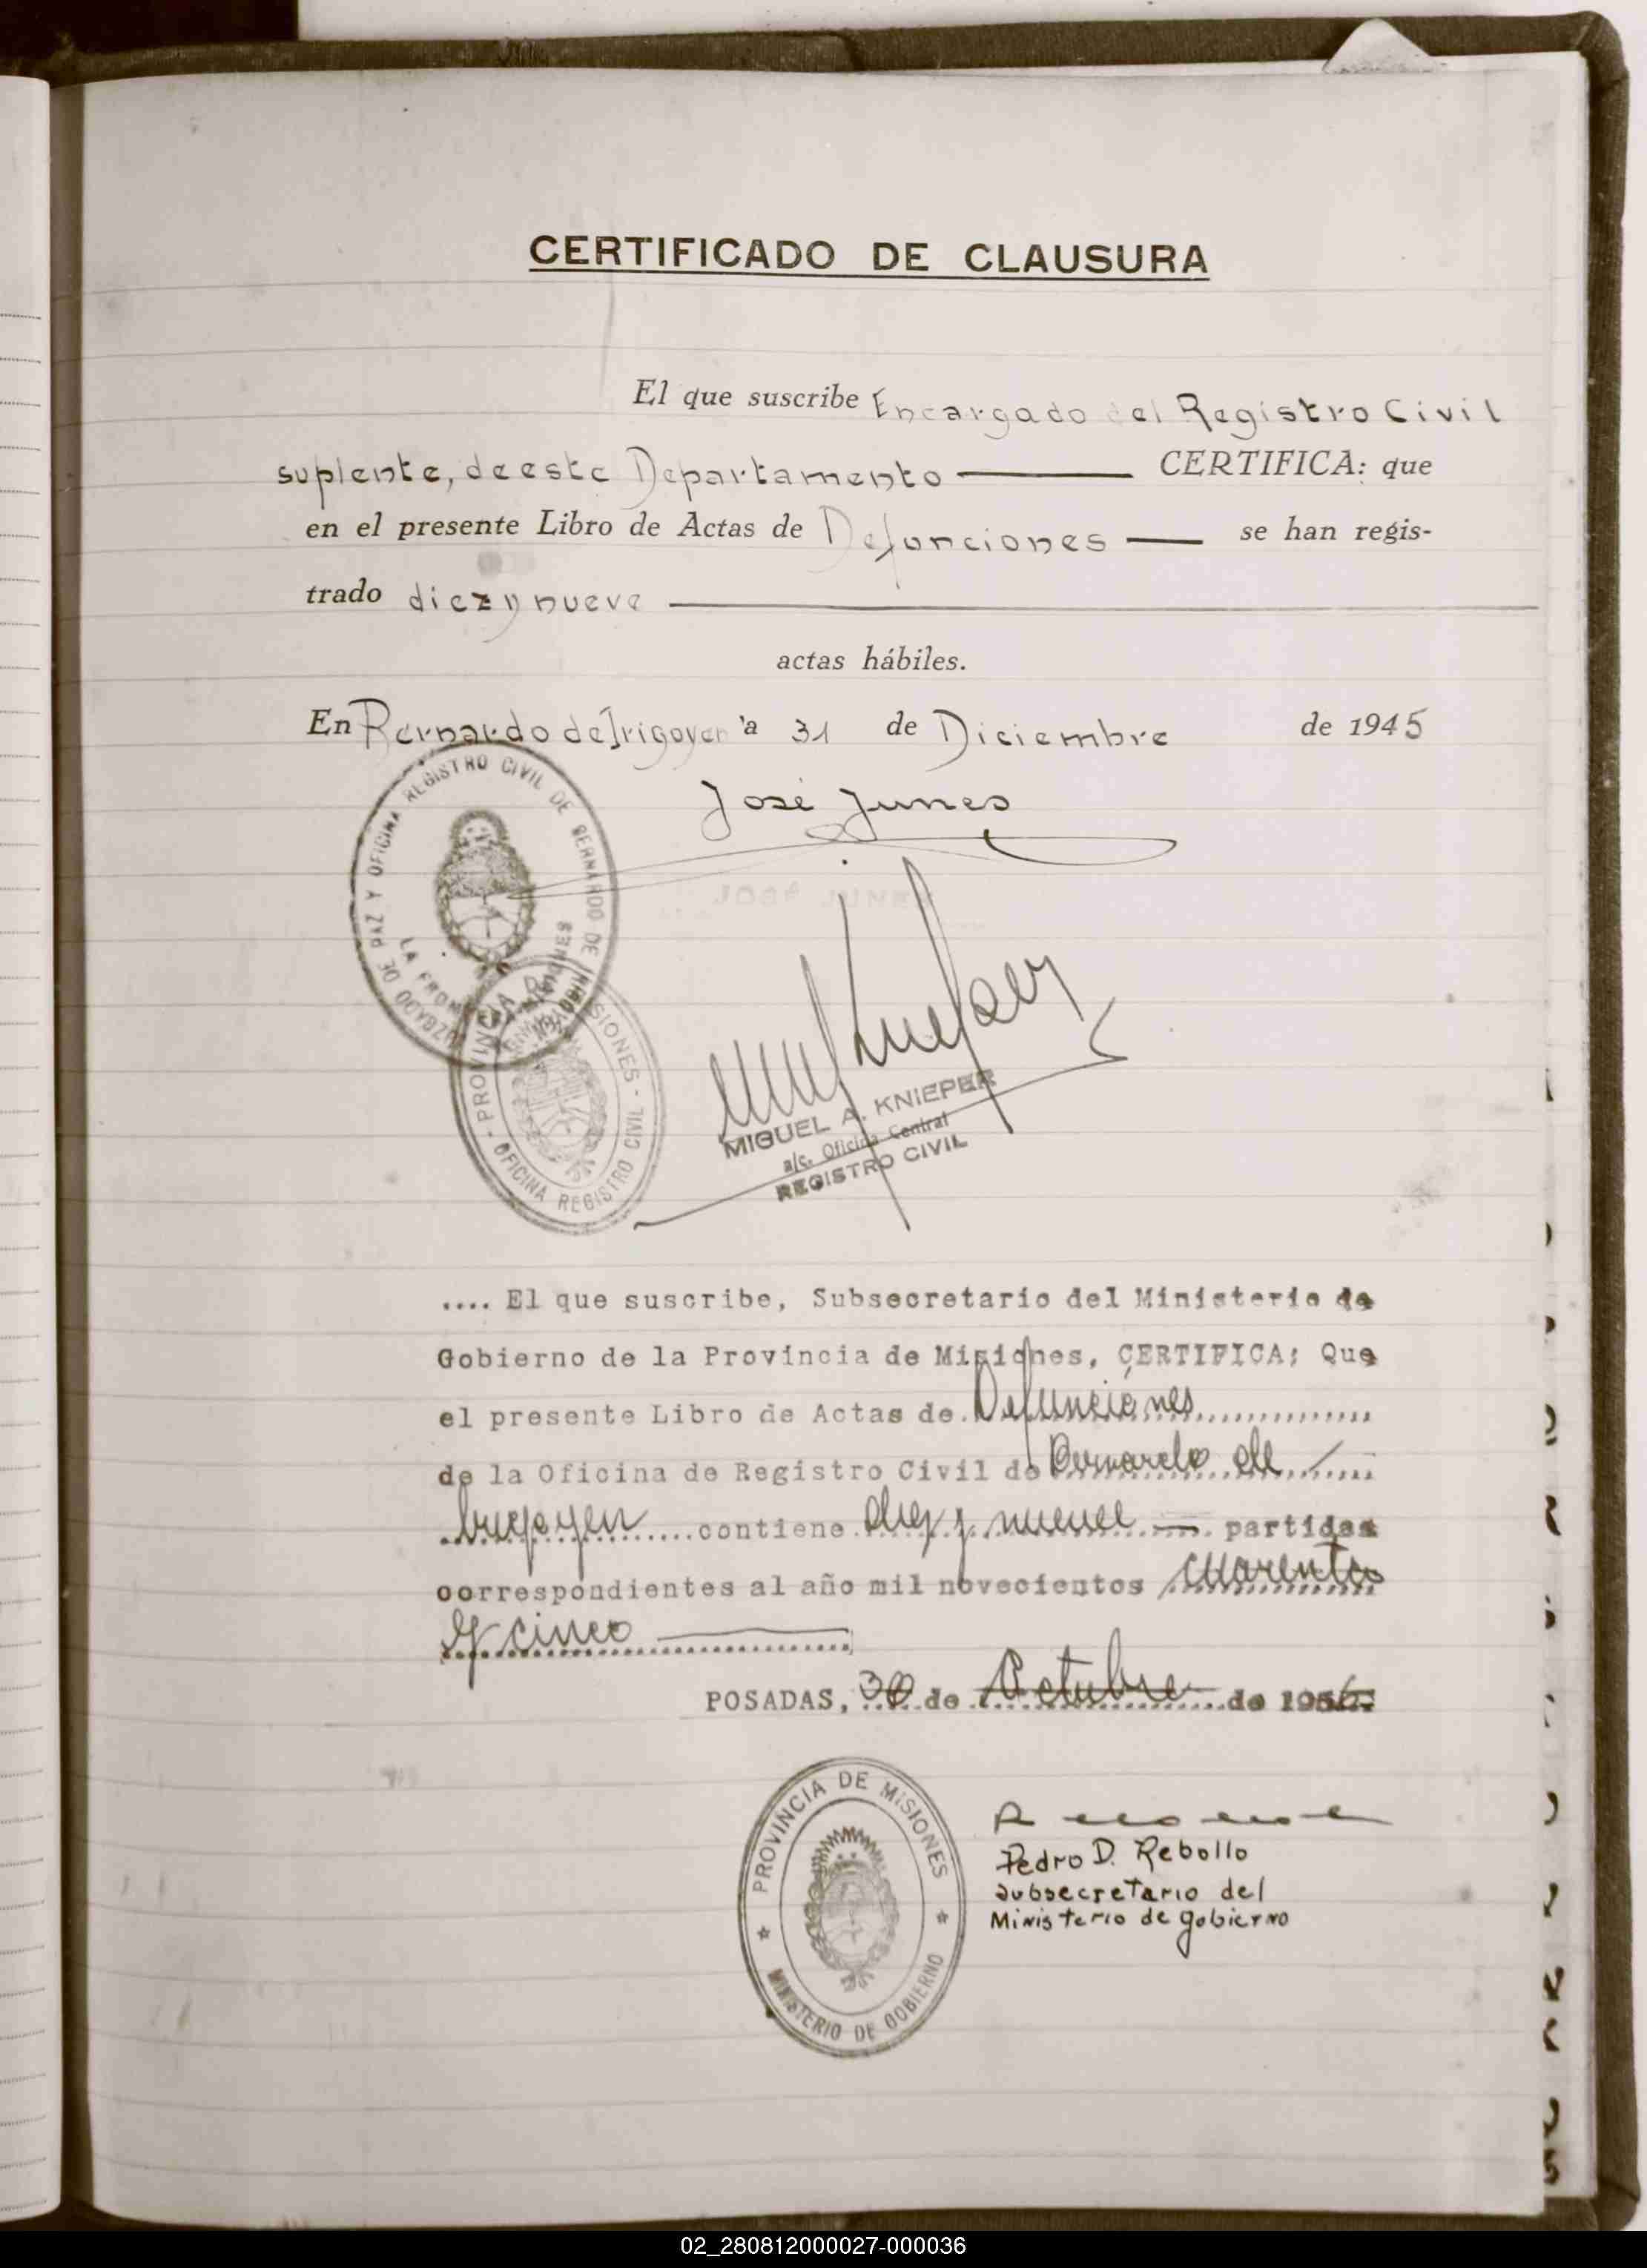 CERTIFICADO DE CLAUSURA
El que suscribe Encargado del Registro Civil
suplente, de este Departamento — CERTIFICA: que
en el presente Libro de Actas de Defunciones — se han regis-
trado diez y nueve —
actas hábiles.
En Bernardo de Irigoyen a 31 de Diciembre de 1945
José Junes
JUZGADO DE PAZ Y OFICINA REGISTRO CIVIL DE BERNARDO DE IRIGOYEN
MISIONES
JOSÉ JUNES
PROVINCIA DE MISIONES - OFICINA REGISTRO CIVIL -
MIGUEL A. KNIEPER
a/c. Oficina Central
REGISTRO CIVIL
.... El que suscribe, Subsecretario del Ministerio de
Gobierno de la Provincia de Misiones, CERTIFICA; Que
el presente Libro de Actas de Defunciones
de la Oficina de Registro Civil de Bernardo de
Irigoyen contiene diez y nueve — partidas
correspondientes al año mil novecientos cuarenta
y cinco —
POSADAS, 30 de Octubre de 1956
PROVINCIA DE MISIONES
MINISTERIO DE GOBIERNO
Pedro D. Rebollo
Subsecretario del
Ministerio de gobierno
02_280812000027-000036